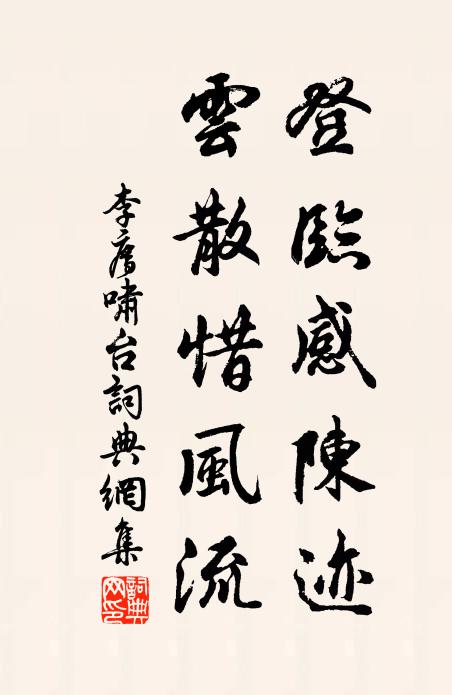 登臨感陳迹
雲散惜風流
李廌嘯台詞典網集
詞典
网印